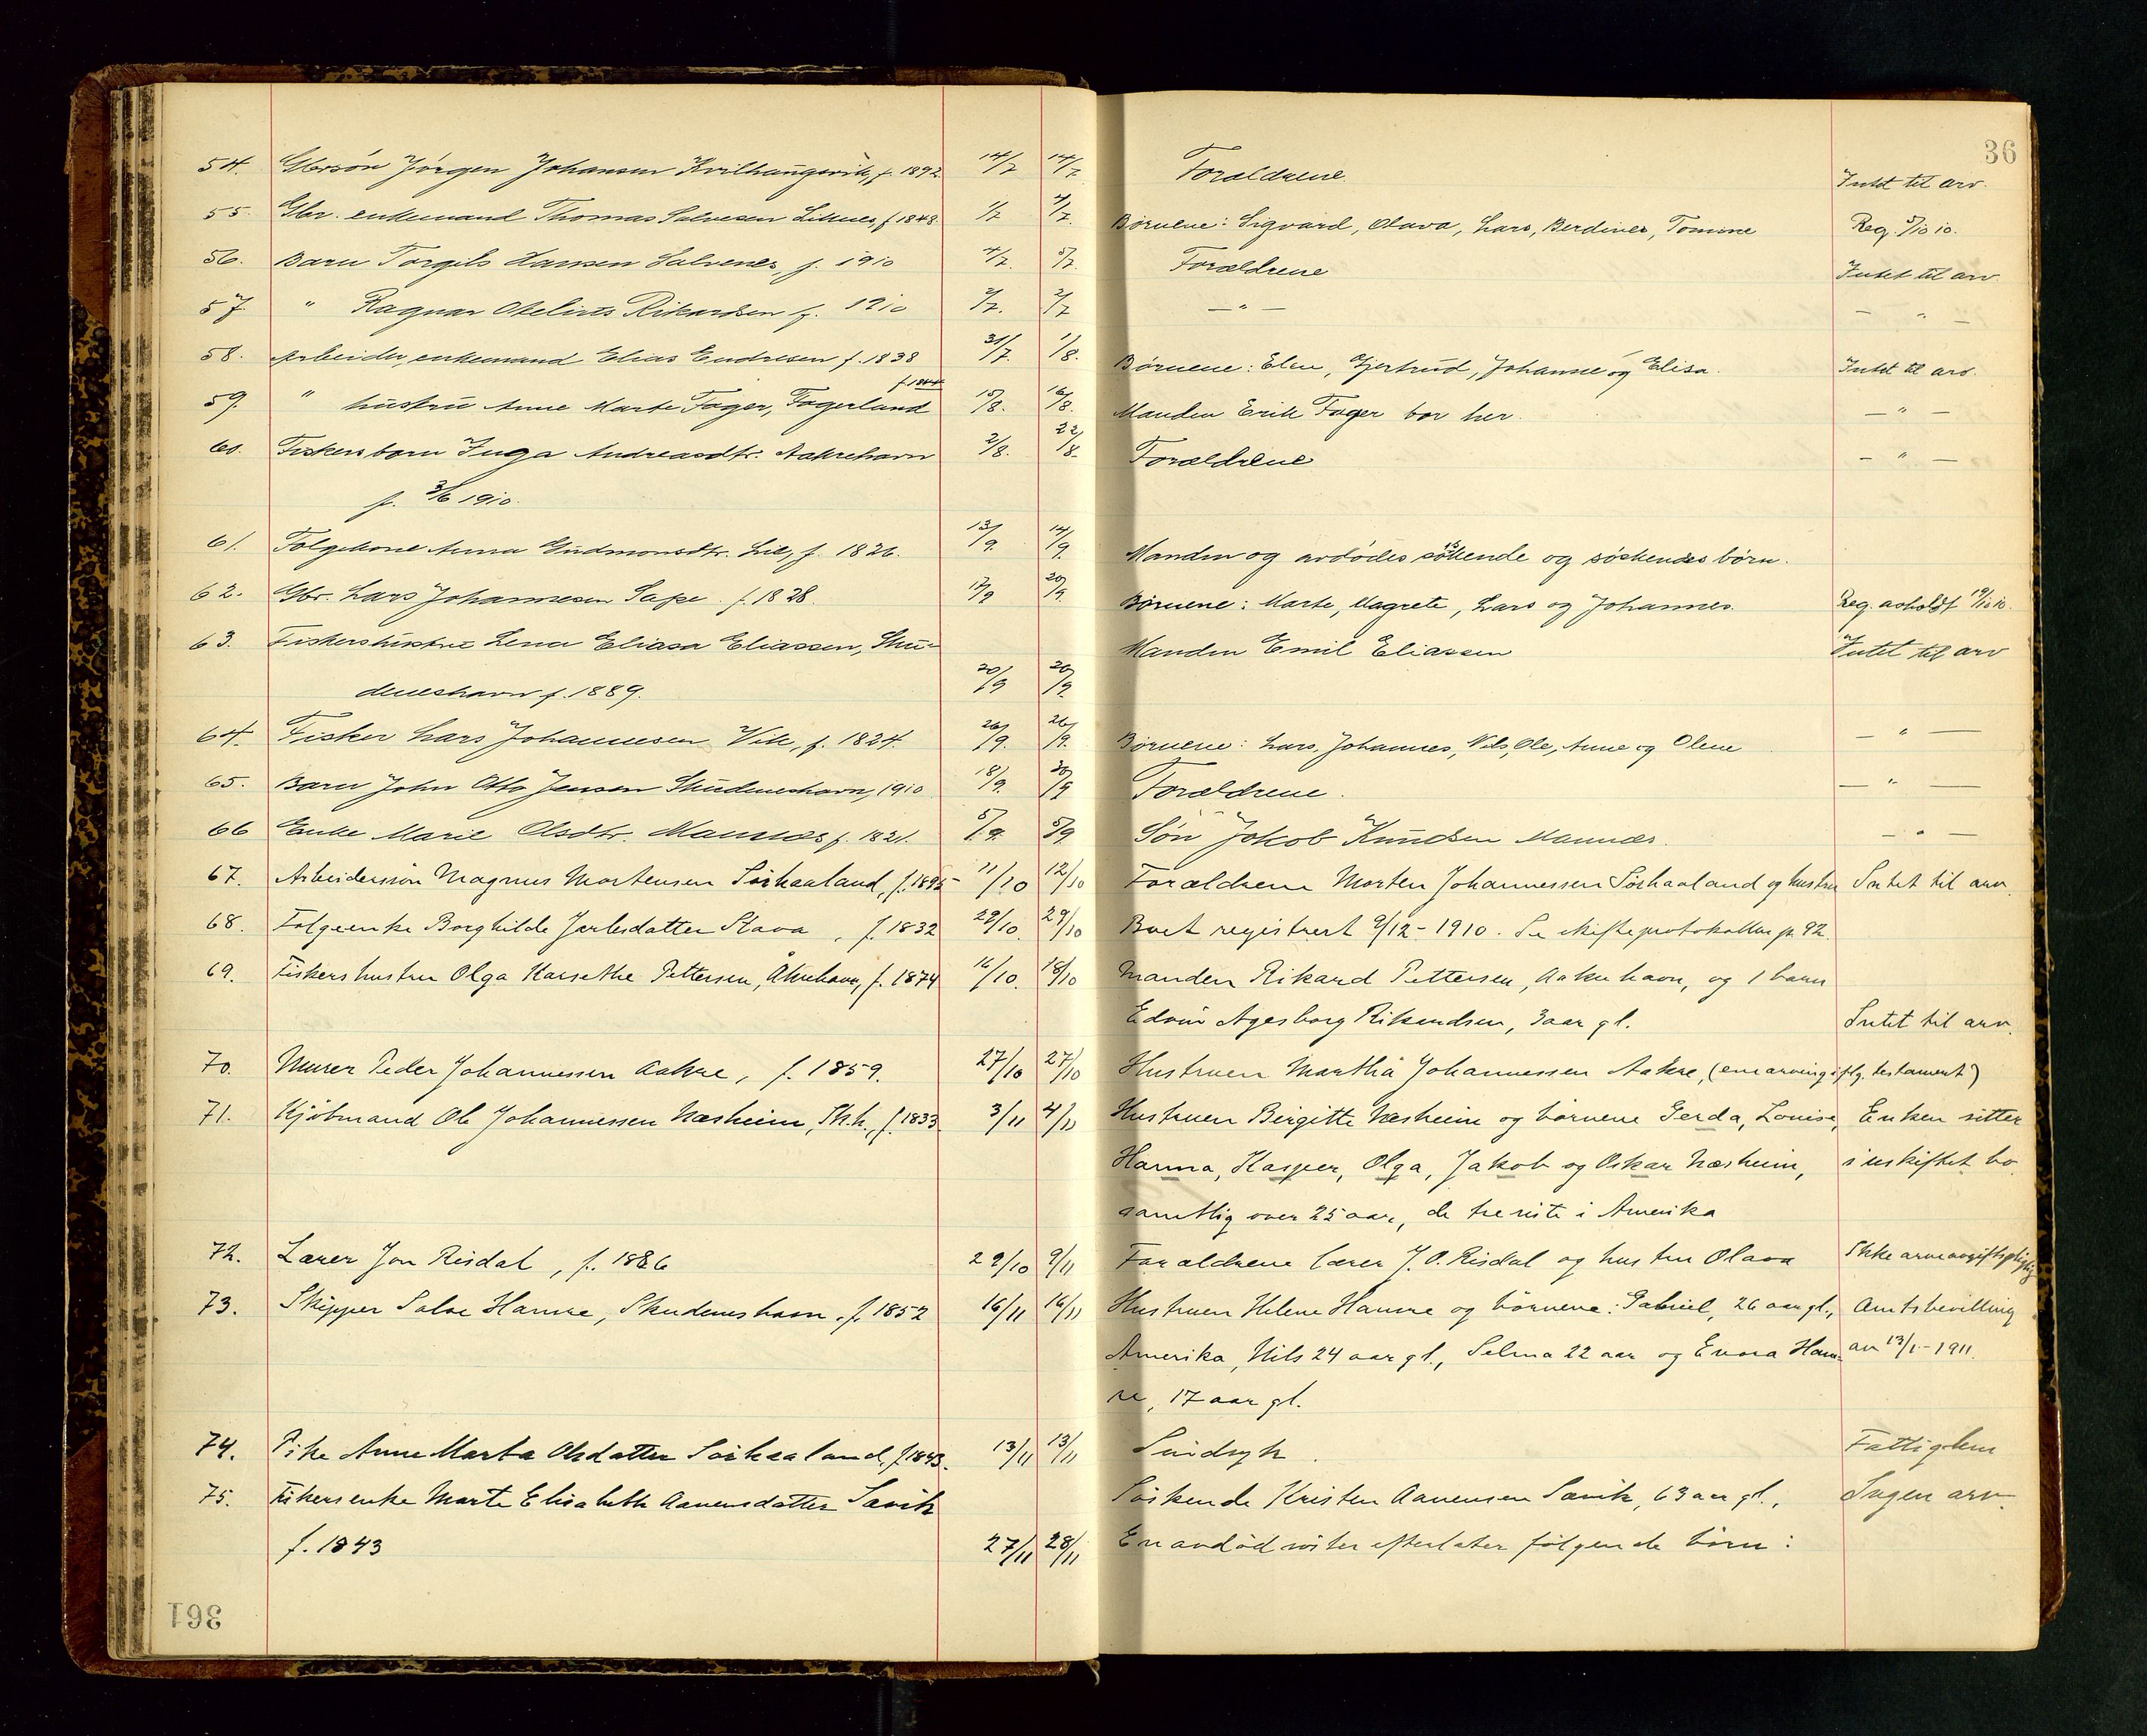 36
54. Gbrsøn Jørgen Johansen Kvilhaugsvik, f. 1892 14/7 14/7 Forældrene. Intet til arv.
55. Gbr. enkemand Thomas Salvesen f. 1848 1/7 4/7. Børnene: Sigvard, Olava, Lars, Berdines, Tomine Reg. 5/10 10.
56. Barn Torgils Hansen Salvenes, f. 1910 4/7. 5/7. Forældrene Intet til arv
57. " Ragnar Rikardsen f. 1910 2/7. 2/7 — " — — " —
58. Arbeider, enkemand Elias Endresen f. 1838 31/7. 1/8. Børnene: Elen, Gjertrud, Johanne og Elisa. Intet til arv.
f. 1844
59. " hustru Anne Marte Fager, Fagerland 15/8. 16/8. Manden Erik Fager bor her. — " —
60. Fiskers barn Inga Andreasdtr. Aakrehavn 2/8. 22/8. Forældrene — " —
f. 3/6 1910.
61. Følgekone Anna Gudmonsdtr. Lie, f. 1826. 13/9. 14/9. Manden og avdødes søskende og søskendes børn.
62. Gbr. Lars Johannesen f. 1828. 17/9 20/9. Børnene: Marte, Magrete, Lars og Johannes. Reg. avholdt 19/10 10.
63. Fiskershustru Lena Elisa Eliassen, Sku- Manden Emil Eliassen Intet til arv
deneshavn f. 1889. 20/9 20/9
64. Fisker Lars Johannesen Vik, f. 1824. 26/9. 26/9. Børnene: Lars, Johannes, Nils, Ole, Anne og Olene — " —
65. Barn John Otto Jensen Skudeneshavn, 1910 18/9. 30/9 Forældrene. — " —
66 Enke Marie Olsdtr. Mannes f. 1821. 5/9. 5/9 Søn Jakob Knudsen Mannes. — " —
67. Arbeidersøn Magnus Mortensen Sørhaaland, f. 1895 11/10 12/10 Forældrene Morten Johannessen Sørhaaland og hustru Intet til arv.
68. Følgeenke Borghilde Jarlesdatter Stava, f. 1832 29/10. 29/10 Boet registrert 9/12-1910. Se skifteprotokollen p. 92.
69. Fiskers hustru Olga Pettersen, Åkrehavn, f. 1874 16/10. 18/10 Manden Rikard Pettersen, Aakrehavn, og 1 barn
Edvin Agesborg Rikardsen, 3 aar gl. Intet til arv.
70. Murer Peder Johannessen Aakre, f. 1859. 27/10 27/10 Hustruen Martha Johannessen Aakre, (enearving iflg. testament)
71. Kjøbmand Ole Johannessen Næsheim, Sk.h., f. 1833 3/11 4/11 Hustruen Birgitte Næsheim og børnene Gerda, Louise, Enken sitter
Hanna, Kasper, Olga, Jakob og Oskar Næsheim, i uskiftet bo.
samtlig over 25 aar, de tre siste i Amerika
72. Lærer Jon Risdal, f. 1886 29/10 9/11 Forældrene lærer J. O. Risdal og hustru Olava Ikke arveavgiftspligtig
73. Skipper Salve Hamre, Skudeneshavn. f. 1852 16/11 16/11 Hustruen Helene Hamre og børnene: Gabriel, 26 aar gl., Amtsbevilling
Amerika, Nils 24 aar gl., Selma 22 aar og Enora Ham- av 13/1-1911.
re, 17 aar gl.
74. Pike Anne Marta Olsdatter Sørhaaland, f. 1843. 13/11 13/11 Sindsyk. Fattiglem
75. Fiskersenke Marte Elisabeth Aanensdatter Sævik Søskende Kristen Aanensen Sævik, 63 aar gl., Ingen arv.
f. 1843 27/11 28/11 En avdød søster efterlater følgende børn:
361